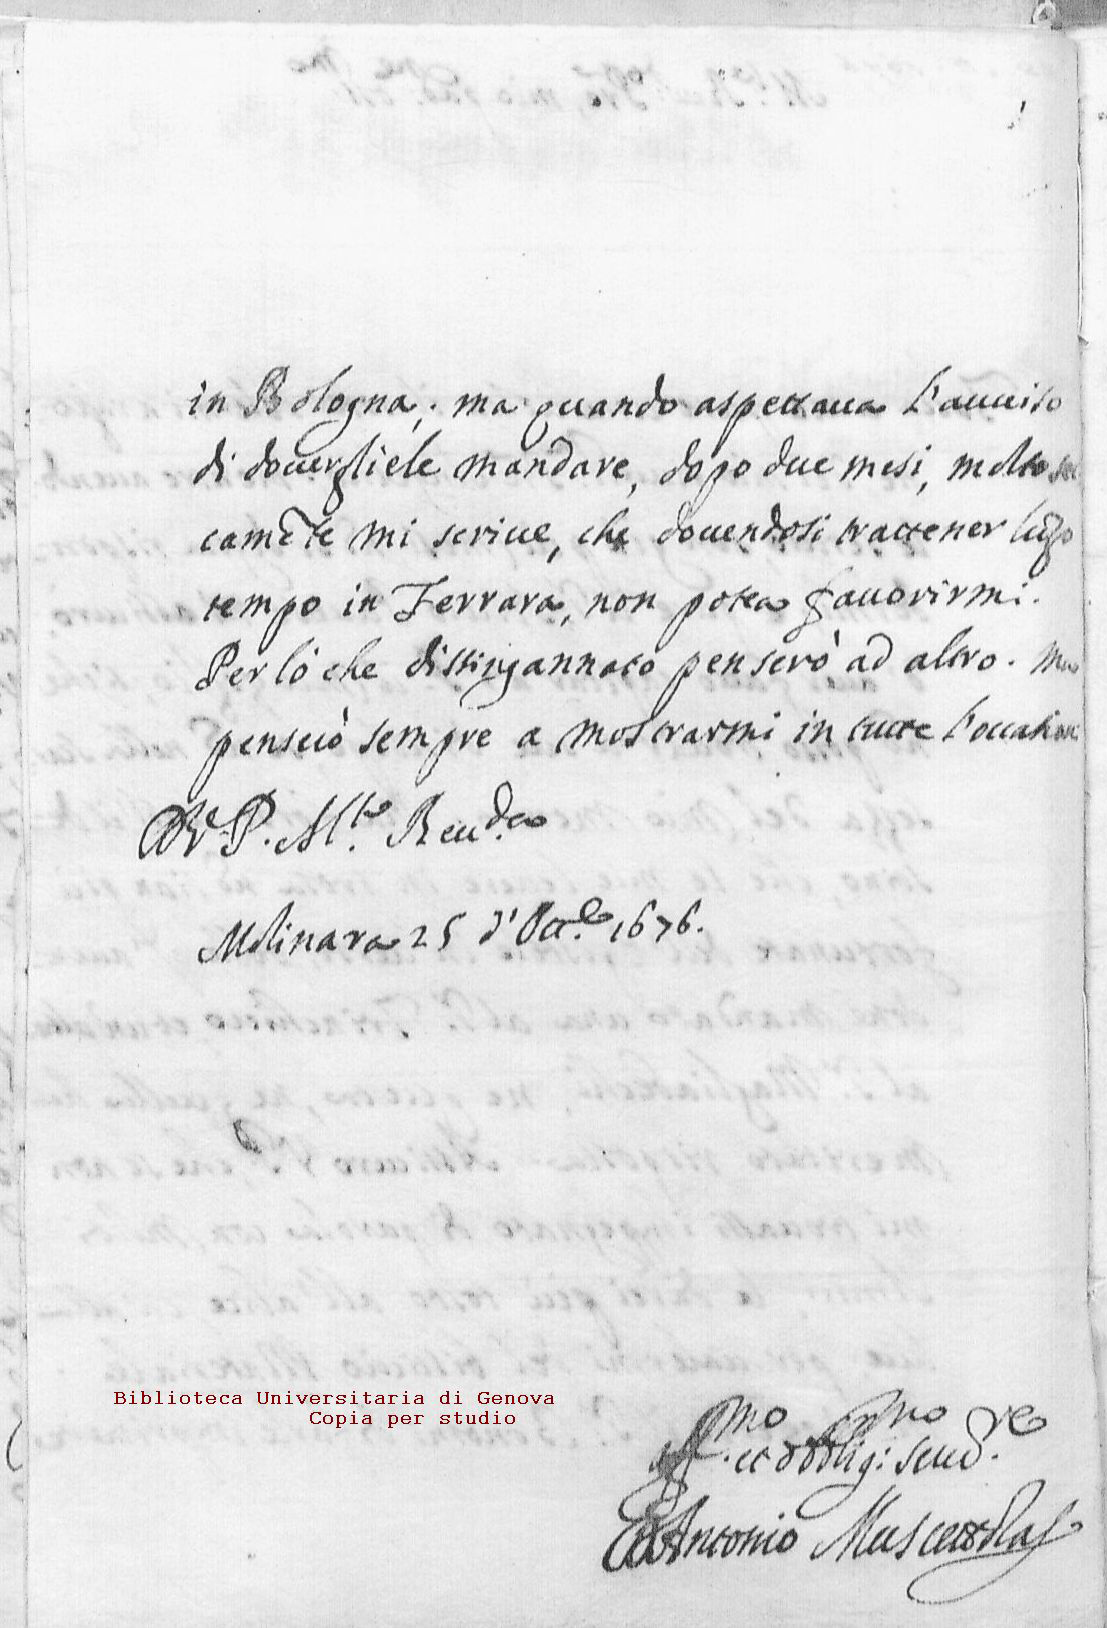 in Bologna, ma quando aspettaua l'auuiso
di douergliele mandare, dopo due mesi, molto
camẽte mi scriue, che douendosi trattener lũgo
tempo in Ferrara, non potea fauorirmi.
Perlo che dissingannato penserò ad altro. Ma
penserò sempre a mostrarmi in tutte l'occasioni
D V. P. M.to Reu.da
Molinara 25 d'Ott.e 1676.
Biblioteca Universitaria di Genova
Copia per studio
Aff.mo et obblig.mo seru.re
Antonio Muscettola